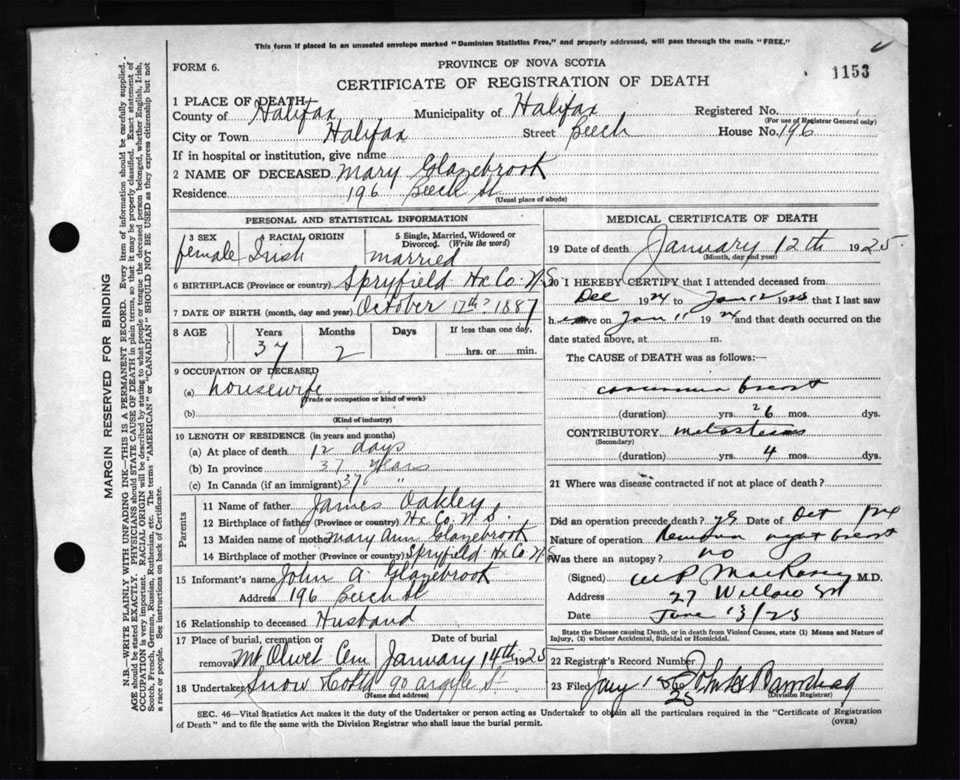 This form if placed in an unsealed envelope marked "Dominion Statistics Free," and properly addressed, will pass through the mails "FREE."
FORM 6.
PROVINCE OF NOVA SCOTIA
1153
CERTIFICATE OF REGISTRATION OF DEATH
1 PLACE OF DEATH
County of Halifax Municipality of Halifax Registered No.
(For use of Registrar General only)
City or Town Halifax Street Beech House No. 196
If in hospital or institution, give name
2 NAME OF DECEASED Mary Glazebrook
Residence 196 Beech St
(Usual place of abode)
PERSONAL AND STATISTICAL INFORMATION
3 SEX female
4 RACIAL ORIGIN Irish
5 Single, Married, Widowed or Divorced. (Write the word) married
6 BIRTHPLACE (Province or country) Spryfield Hx Co. N.S
7 DATE OF BIRTH (month, day and year) October 12th 1887
8 AGE Years Months Days If less than one day,
37 2 hrs. or min.
9 OCCUPATION OF DECEASED
(a) housewife
(Trade or occupation or kind of work)
(b)
(Kind of industry)
10 LENGTH OF RESIDENCE (in years and months)
(a) At place of death 12 days
(b) In province 37 years
(c) In Canada (if an immigrant) 37 "
Parents
11 Name of father James Oakley
12 Birthplace of father (Province or country) Hx Co. N S.
13 Maiden name of mother Mary Ann Glazebrook
14 Birthplace of mother (Province or country) Spryfield Hx Co. N.S
15 Informant's name John A. Glazebrook
Address 196 Beech St
16 Relationship to deceased Husband
17 Place of burial, cremation or removal Mt Olivet Cem
Date of burial January 14th 1925
18 Undertaker Snow & Co Ltd 90 Argyle St
(Name and address)
MEDICAL CERTIFICATE OF DEATH
19 Date of death January 12th 1925
(Month, day and year)
20 I HEREBY CERTIFY that I attended deceased from
Dec 1924 to Jan 12 1925 that I last saw
her alive on Jan 11 1924 and that death occurred on the
date stated above, at m.
The CAUSE of DEATH was as follows:—
carcinoma breast
(duration) yrs. 26 mos. dys.
CONTRIBUTORY metastasis
(Secondary)
(duration) yrs. 4 mos. dys.
21 Where was disease contracted if not at place of death?
Did an operation precede death? yes Date of Oct
Nature of operation right breast
Was there an autopsy? no
(Signed) M.D.
Address 27 Willow St
Date 13/25
State the Disease causing Death, or in death from Violent Causes, state (1) Means and Nature of Injury, (2) whether Accidental, Suicidal or Homicidal.
22 Registrar's Record Number
23 Filed Jany
(Division Registrar)
SEC. 46—Vital Statistics Act makes it the duty of the Undertaker or person acting as Undertaker to obtain all the particulars required in the "Certificate of Registration
of Death" and to file the same with the Division Registrar who shall issue the burial permit.
(OVER)
MARGIN RESERVED FOR BINDING
N.B.—WRITE PLAINLY WITH UNFADING INK—THIS IS A PERMANENT RECORD. Every item of information should be carefully supplied.
AGE should be stated EXACTLY. PHYSICIANS should STATE CAUSE OF DEATH in plain terms, so that it may be properly classified. Exact statement of
OCCUPATION is very important. RACIAL ORIGIN will be described by stating to what people or tongue the deceased person belonged, whether English, Irish,
Scotch, French, German, Russian, Ruthenian, etc. The terms "AMERICAN" or "CANADIAN" SHOULD NOT BE USED as they express citizenship but not
a race or people. See instructions on back of Certificate.